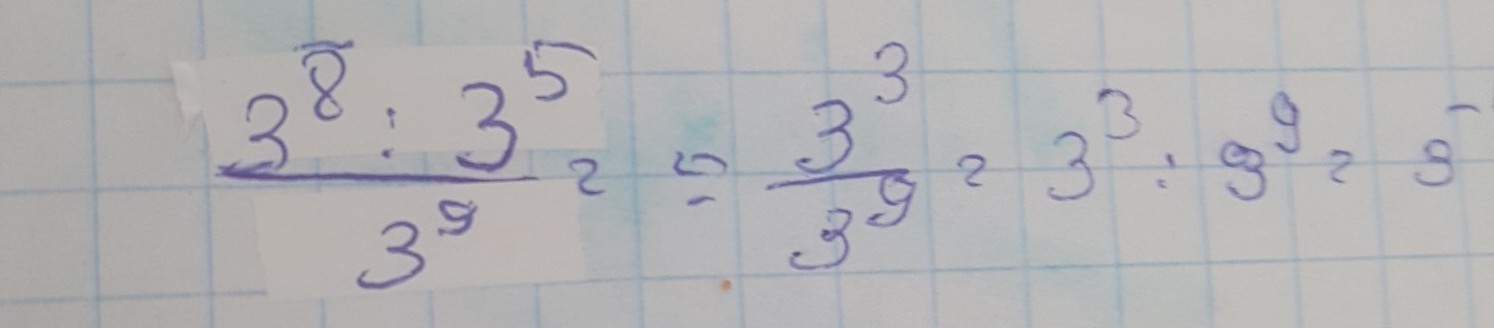 3⁸ : 3⁵ / 3⁹ = = 3³ / 3⁹ = 3³ : 3⁹ = 3⁻